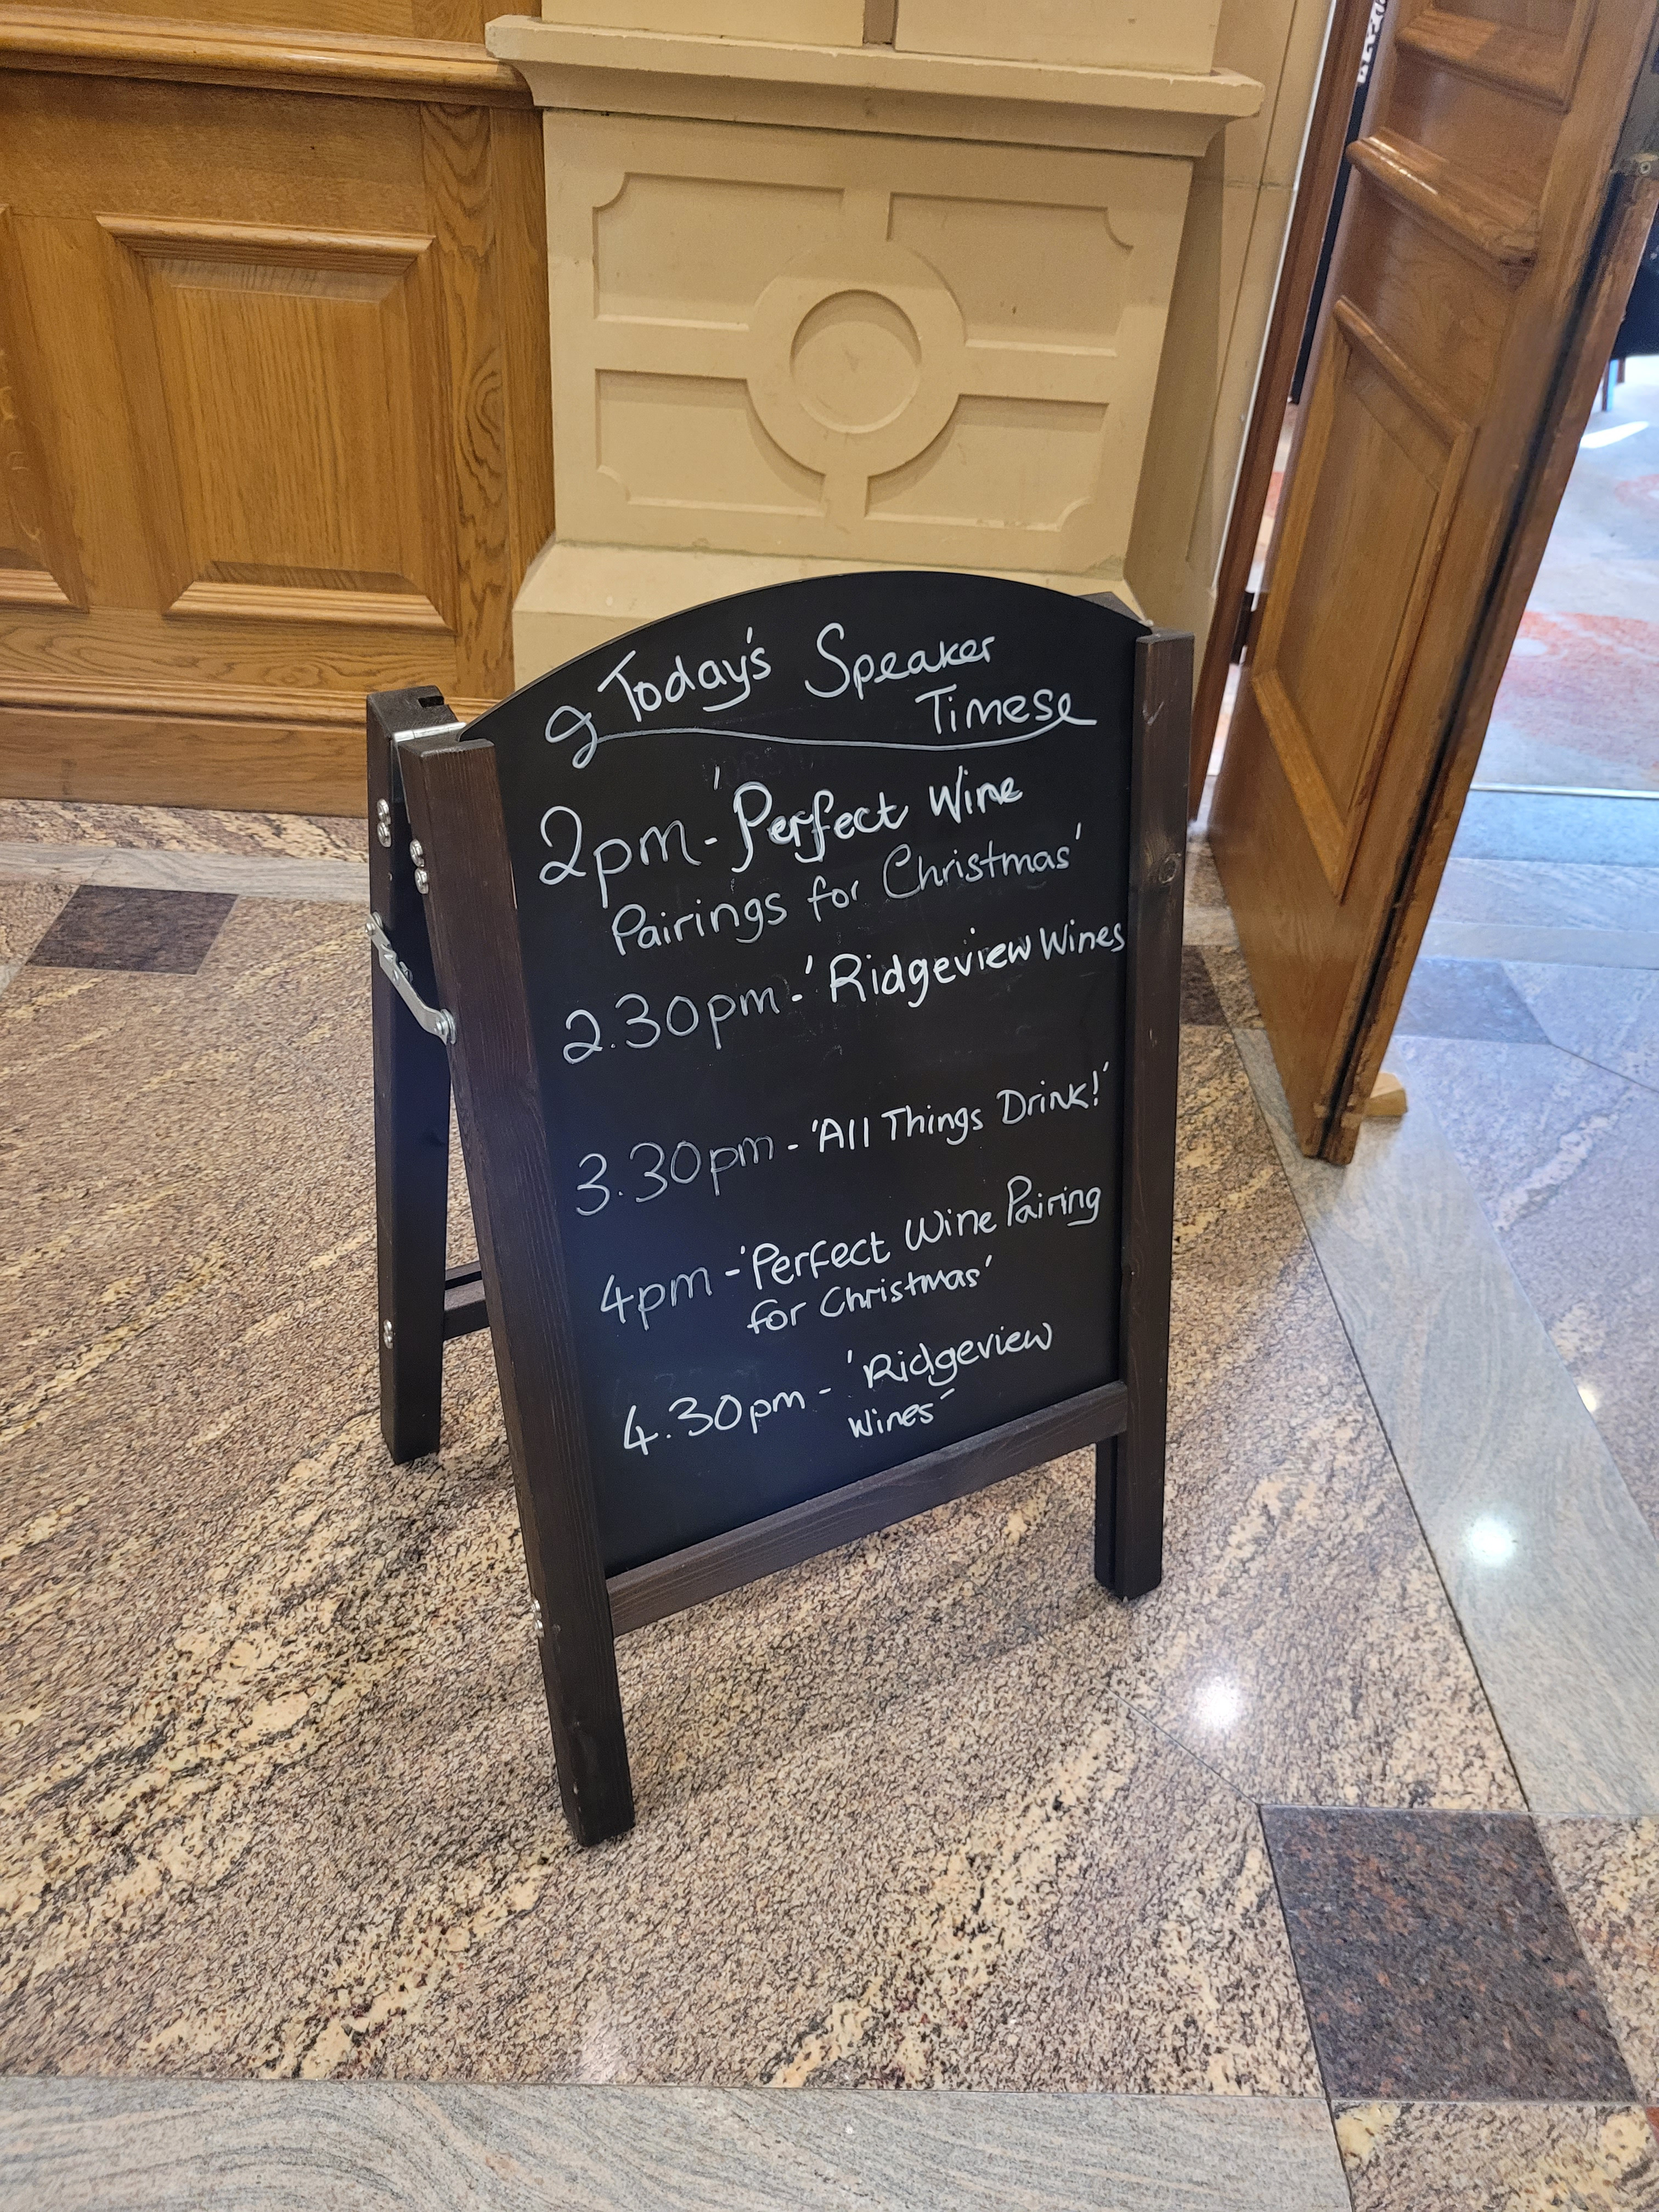 Today's Speaker
Times
2pm - 'Perfect Wine
Pairings for Christmas'
2.30pm - 'Ridgeview Wines
3.30pm - 'All Things Drink!'
4pm - 'Perfect Wine Pairing
for Christmas'
4.30pm - 'Ridgeview
Wines'